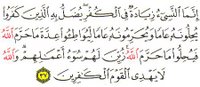 إِنَّمَا ٱلنَّسِىٓءُ زِيَادَةٌ فِى ٱلْكُفْرِ يُضَلُّ بِهِ ٱلَّذِينَ كَفَرُوا۟
يُحِلُّونَهُۥ عَامًا وَيُحَرِّمُونَهُۥ عَامًا لِّيُوَاطِـُٔوا۟ عِدَّةَ مَا حَرَّمَ ٱللَّهُ
فَيُحِلُّوا۟ مَا حَرَّمَ ٱللَّهُ زُيِّنَ لَهُمْ سُوٓءُ أَعْمَـٰلِهِمْ وَٱللَّهُ
لَا يَهْدِى ٱلْقَوْمَ ٱلْكَـٰفِرِينَ ٣٧